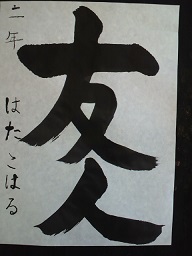 友人
二年
はたこはる